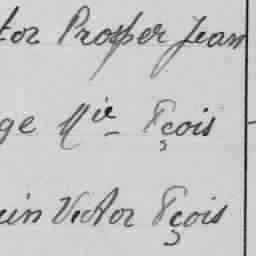 tor Prosper Jean
ge Mie Fçois
in Victor Fçois